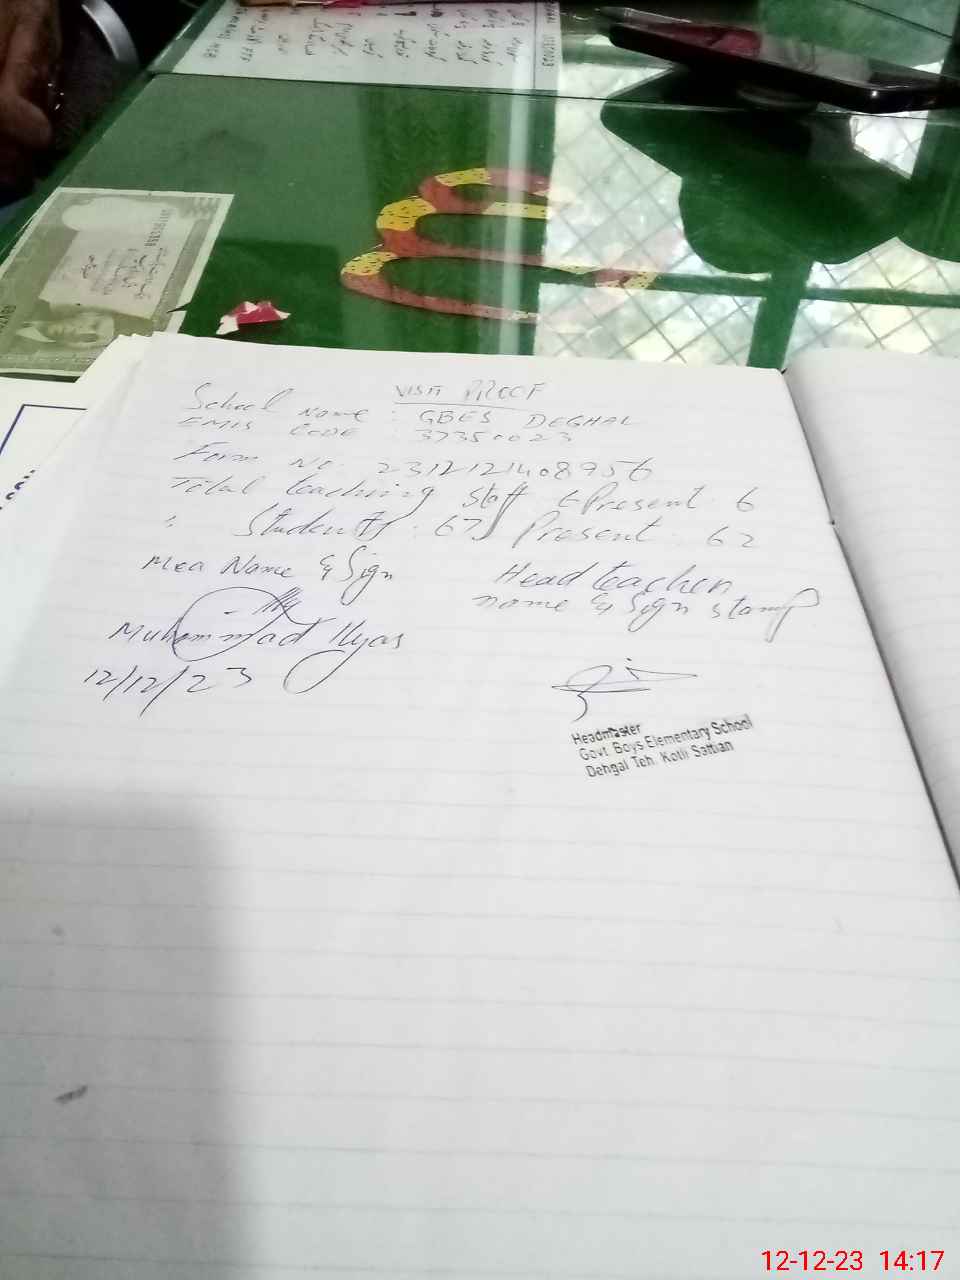 VISIT PROOF
School Name : GBES DEGHAL
EMIS CODE : 37350023
Form No. 231212140 8956
Total teaching staff 6 Present : 6
Students : 67 Present : 62
Mea Name & Sign
Head teacher
name & Sign stamp
Muhammad Ilyas
12/12/23
Headmaster
Govt. Boys Elementary School
Dehgal Teh. Kotli Sattian
12-12-23 14:17